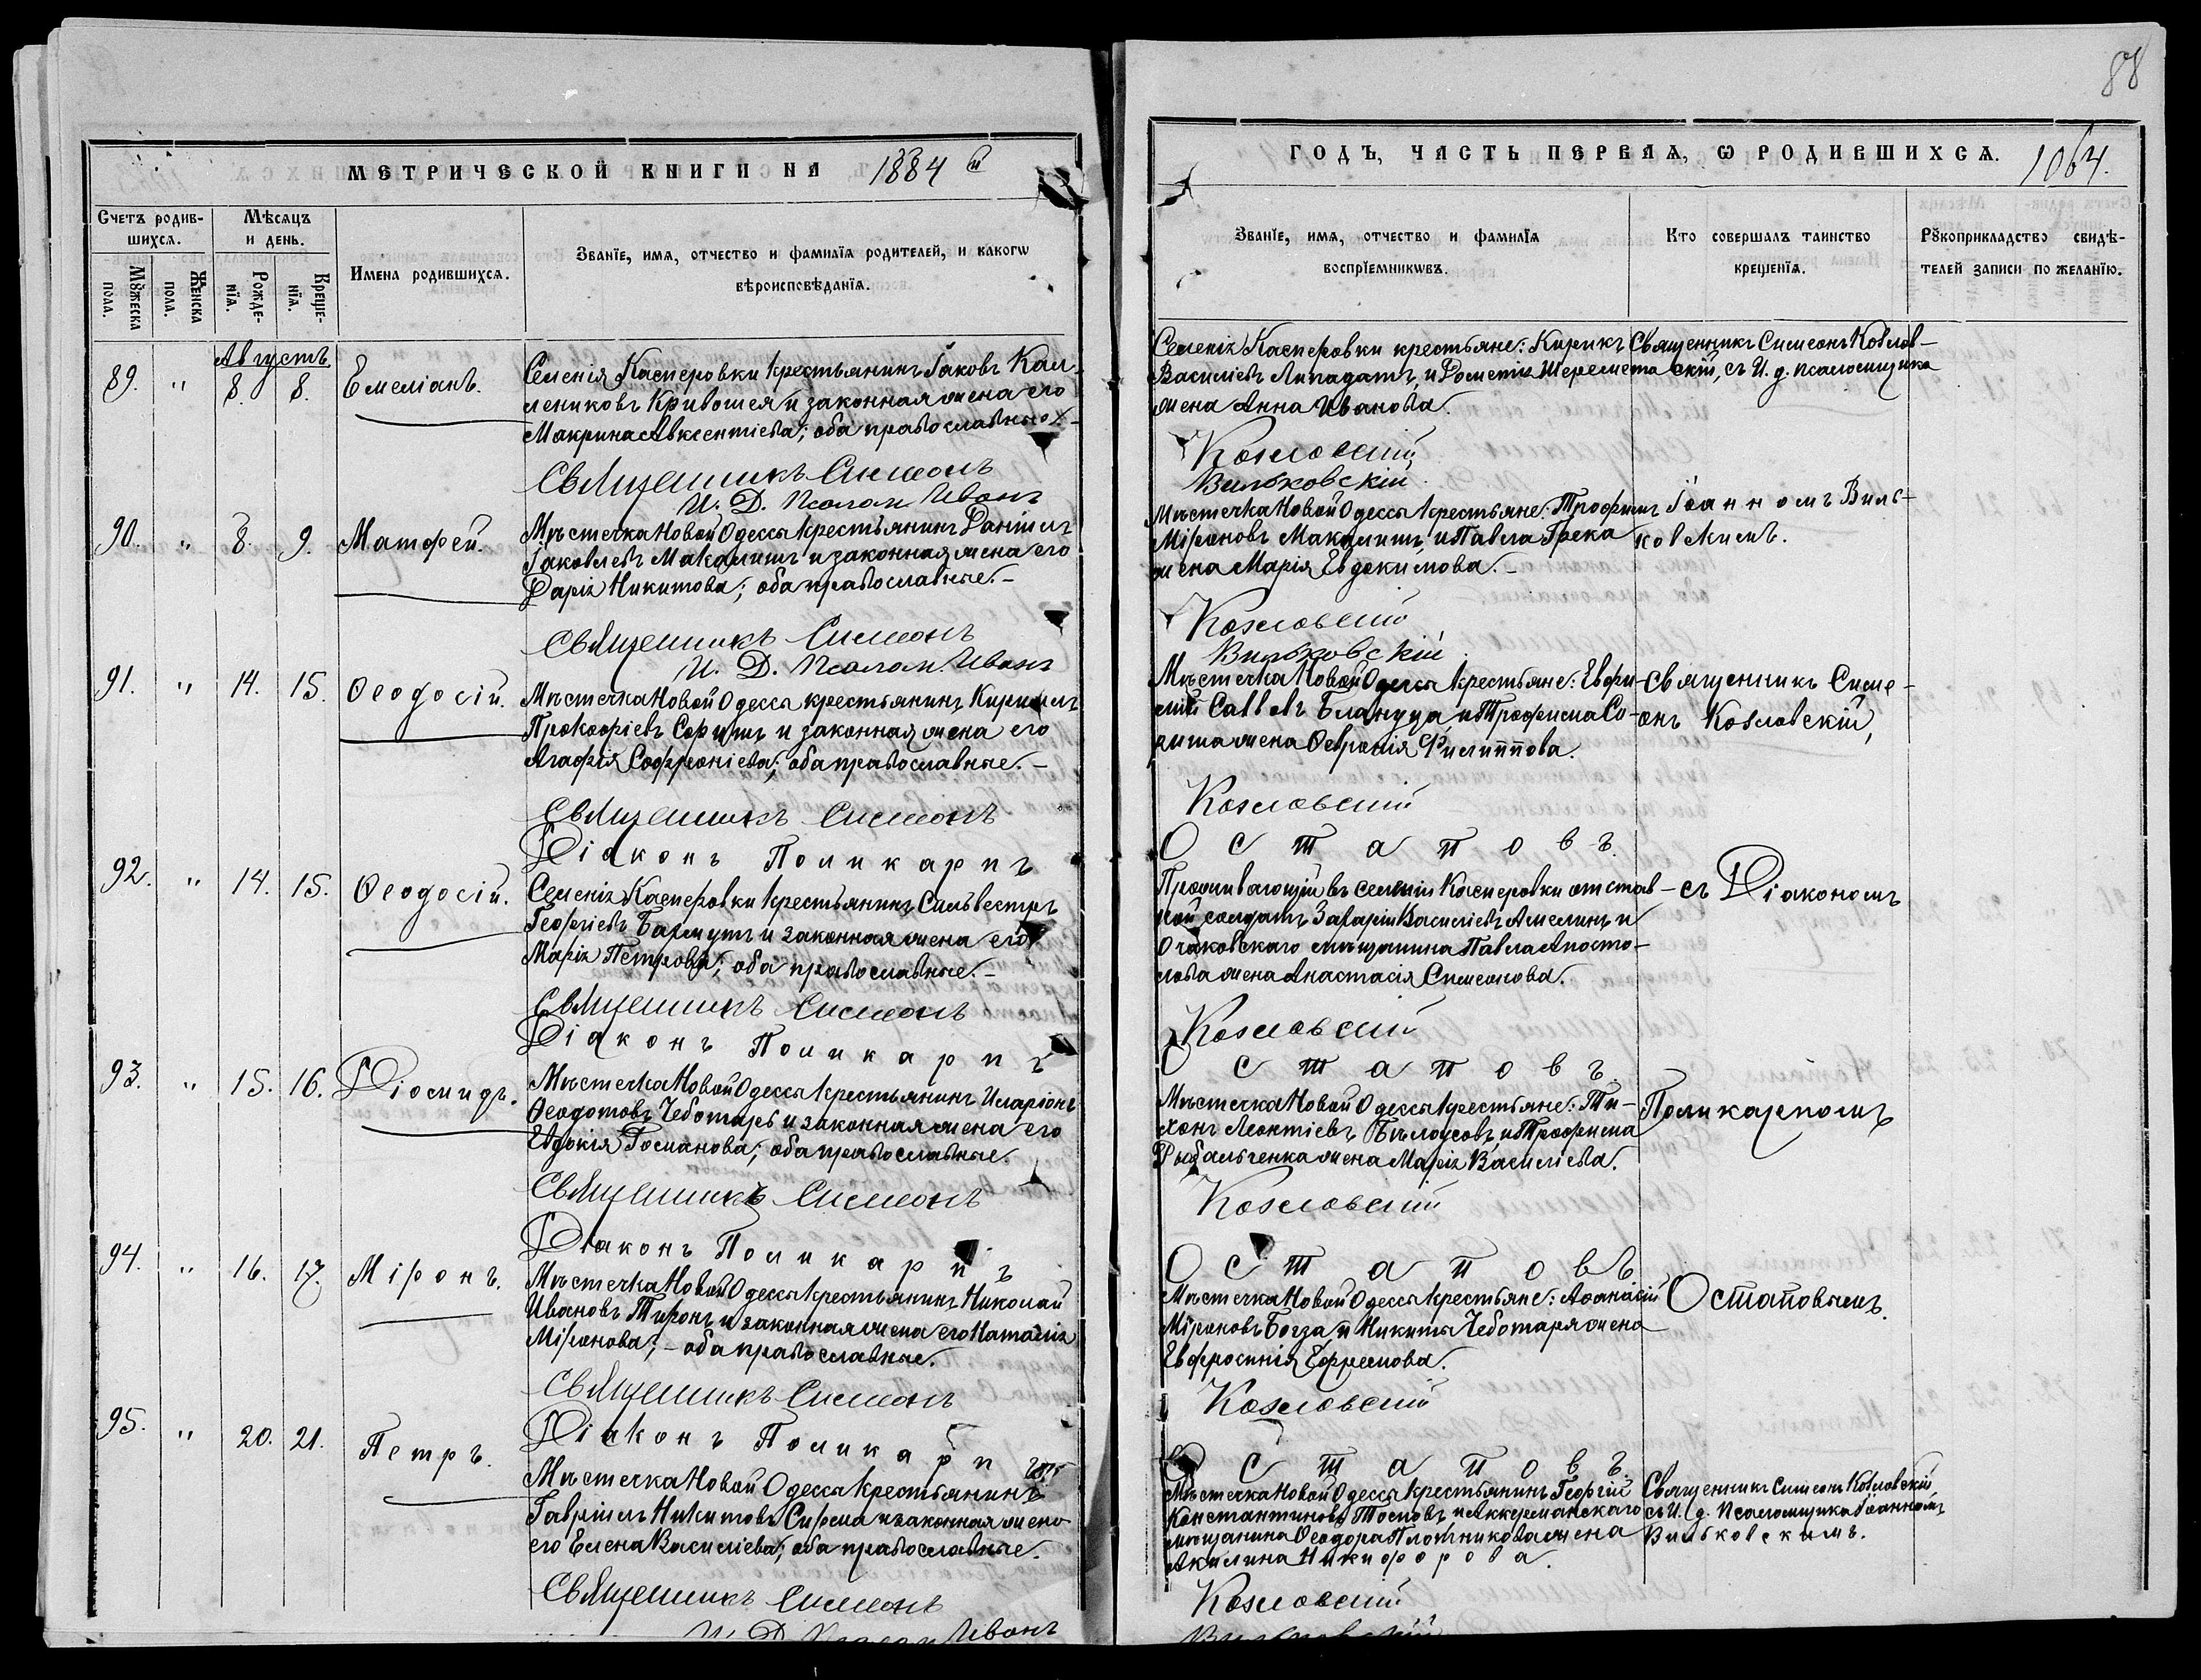 88
МЕТРИЧЕСКОЙ КНИГИ НА 1884 й
ГОДЪ, ЧАСТЬ ПЕРВАЯ, Ѡ РОДИВШИХСѦ. 1064.
Счетъ родив-
шихсѧ.
Мѣсѧцъ
и день.
Мꙋжеска
пола.
Женска
пола.
Рожде-
нїѧ.
Креще-
нїѧ.
Имена родившихсѧ.
Званїе, имѧ, отчество и фамилїѧ родителей, и какогѡ
вѣроисповѣданїѧ.
Званїе, имѧ, отчество и фамилїѧ
воспрїемникѡвъ.
Кто совершалъ таинство
крещенїѧ.
Рꙋкоприкладство свидѣ-
телей записи по желанїю.
Августъ
89. " 8. 8. Емеліанъ.
Селенія Касперовки крестьянинъ Іаковъ Кал-
лениковъ Кривошея и законная жена его
Макрина Авксентіева; оба православные.
Священникъ Симеонъ
И. Д. Псалом. Иванъ
Селенія Касперовки крестьяне: Кирикъ
Василіевъ Липадатъ, и Шеремета
жена Анна Иванова.
Козловскій
Вильковскій
Священникъ Симеонъ Козлов-
скій, съ И. д. псаломщика
90. " 8. 9. Матфей.
Мѣстечка Новой Одессы крестьянинъ Даніилъ
Іаковлевъ Макалишъ и законная жена его
Дарія Никитова; оба православные.-
Священникъ Симеонъ
И. Д. Псалом. Иванъ
Мѣстечка Новой Одессы крестьяне: Трофимъ
Мѵроновъ Макалишъ, и Павла Грека
жена Марія Евдокимова.-
Козловскій
Вильковскій
Іоанномъ Виль-
ковскимъ.
91. " 14. 15. Ѳеодосій.
Мѣстечка Новой Одессы крестьянинъ Кириллъ
Прокофіевъ и законная жена его
Агафія Софроніева; оба православные.-
Священникъ Симеонъ
Діаконъ Поликарпъ
Мѣстечка Новой Одессы крестьяне: Евфи-
мій Саввовъ Бландуца, и Трофима Со-
жена Ѳевронія Филиппова.
Козловскій
Остаповъ.
Священникъ Симе-
онъ Козловскій,
92. " 14. 15. Ѳеодосій.
Селенія Касперовки крестьянинъ Сильвестръ
Георгіевъ Бахмутъ и законная жена его
Марія Петрова; оба православные.-
Священникъ Симеонъ
Діаконъ Поликарпъ
Проживающій въ селеніи Касперовки отстав-
ной солдатъ Захарій Василіевъ Амелинъ и
Очаковскаго мѣщанина Павла Апосто-
лова жена Анастасія Симеонова.
Козловскій
Остаповъ.
съ Діакономъ
93. " 15. 16. Діомидъ.
Мѣстечка Новой Одессы крестьянинъ Иларіонъ
Ѳеодотовъ Чеботарь и законная жена его
Евдокія Романова; оба православные.
Священникъ Симеонъ
Діаконъ Поликарпъ
Мѣстечка Новой Одессы крестьяне: Ти-
хонъ Леонтіевъ Бѣлоусовъ, и Трофима
Рыбальченка жена Марія Василіева.
Козловскій
Остаповъ
Поликарпомъ
94. " 16. 17. Мѵронъ.
Мѣстечка Новой Одессы крестьянинъ Николай
Ивановъ Тиронъ и законная жена его Наталія
Мѵронова;- оба православные.
Священникъ Симеонъ
Діаконъ Поликарпъ
Мѣстечка Новой Одессы крестьяне: Аѳанасій
Мѵроновъ Богза, и Никиты Чеботаря жена
Евфросинія Ефремова.
Козловскій
Остаповъ.
Остаповымъ.
95. " 20. 21. Петръ.
Мѣстечка Новой Одессы крестьянинъ
Гавріилъ Никитовъ Сирма и законная жена
его Елена Василіева; оба православные.
Священникъ Симеонъ
И. Д. Псалом Иванъ
Мѣстечка Новой Одессы крестьянинъ Георгій
Константиновъ и Аккерманскаго
мѣщанина Ѳеодора Плотникова жена
Акилина Никифорова.
Козловскій
Вильковскій
Священникъ Симеонъ Козловскій,
съ И. д. Псаломщика Іоанномъ
Вильковскимъ.